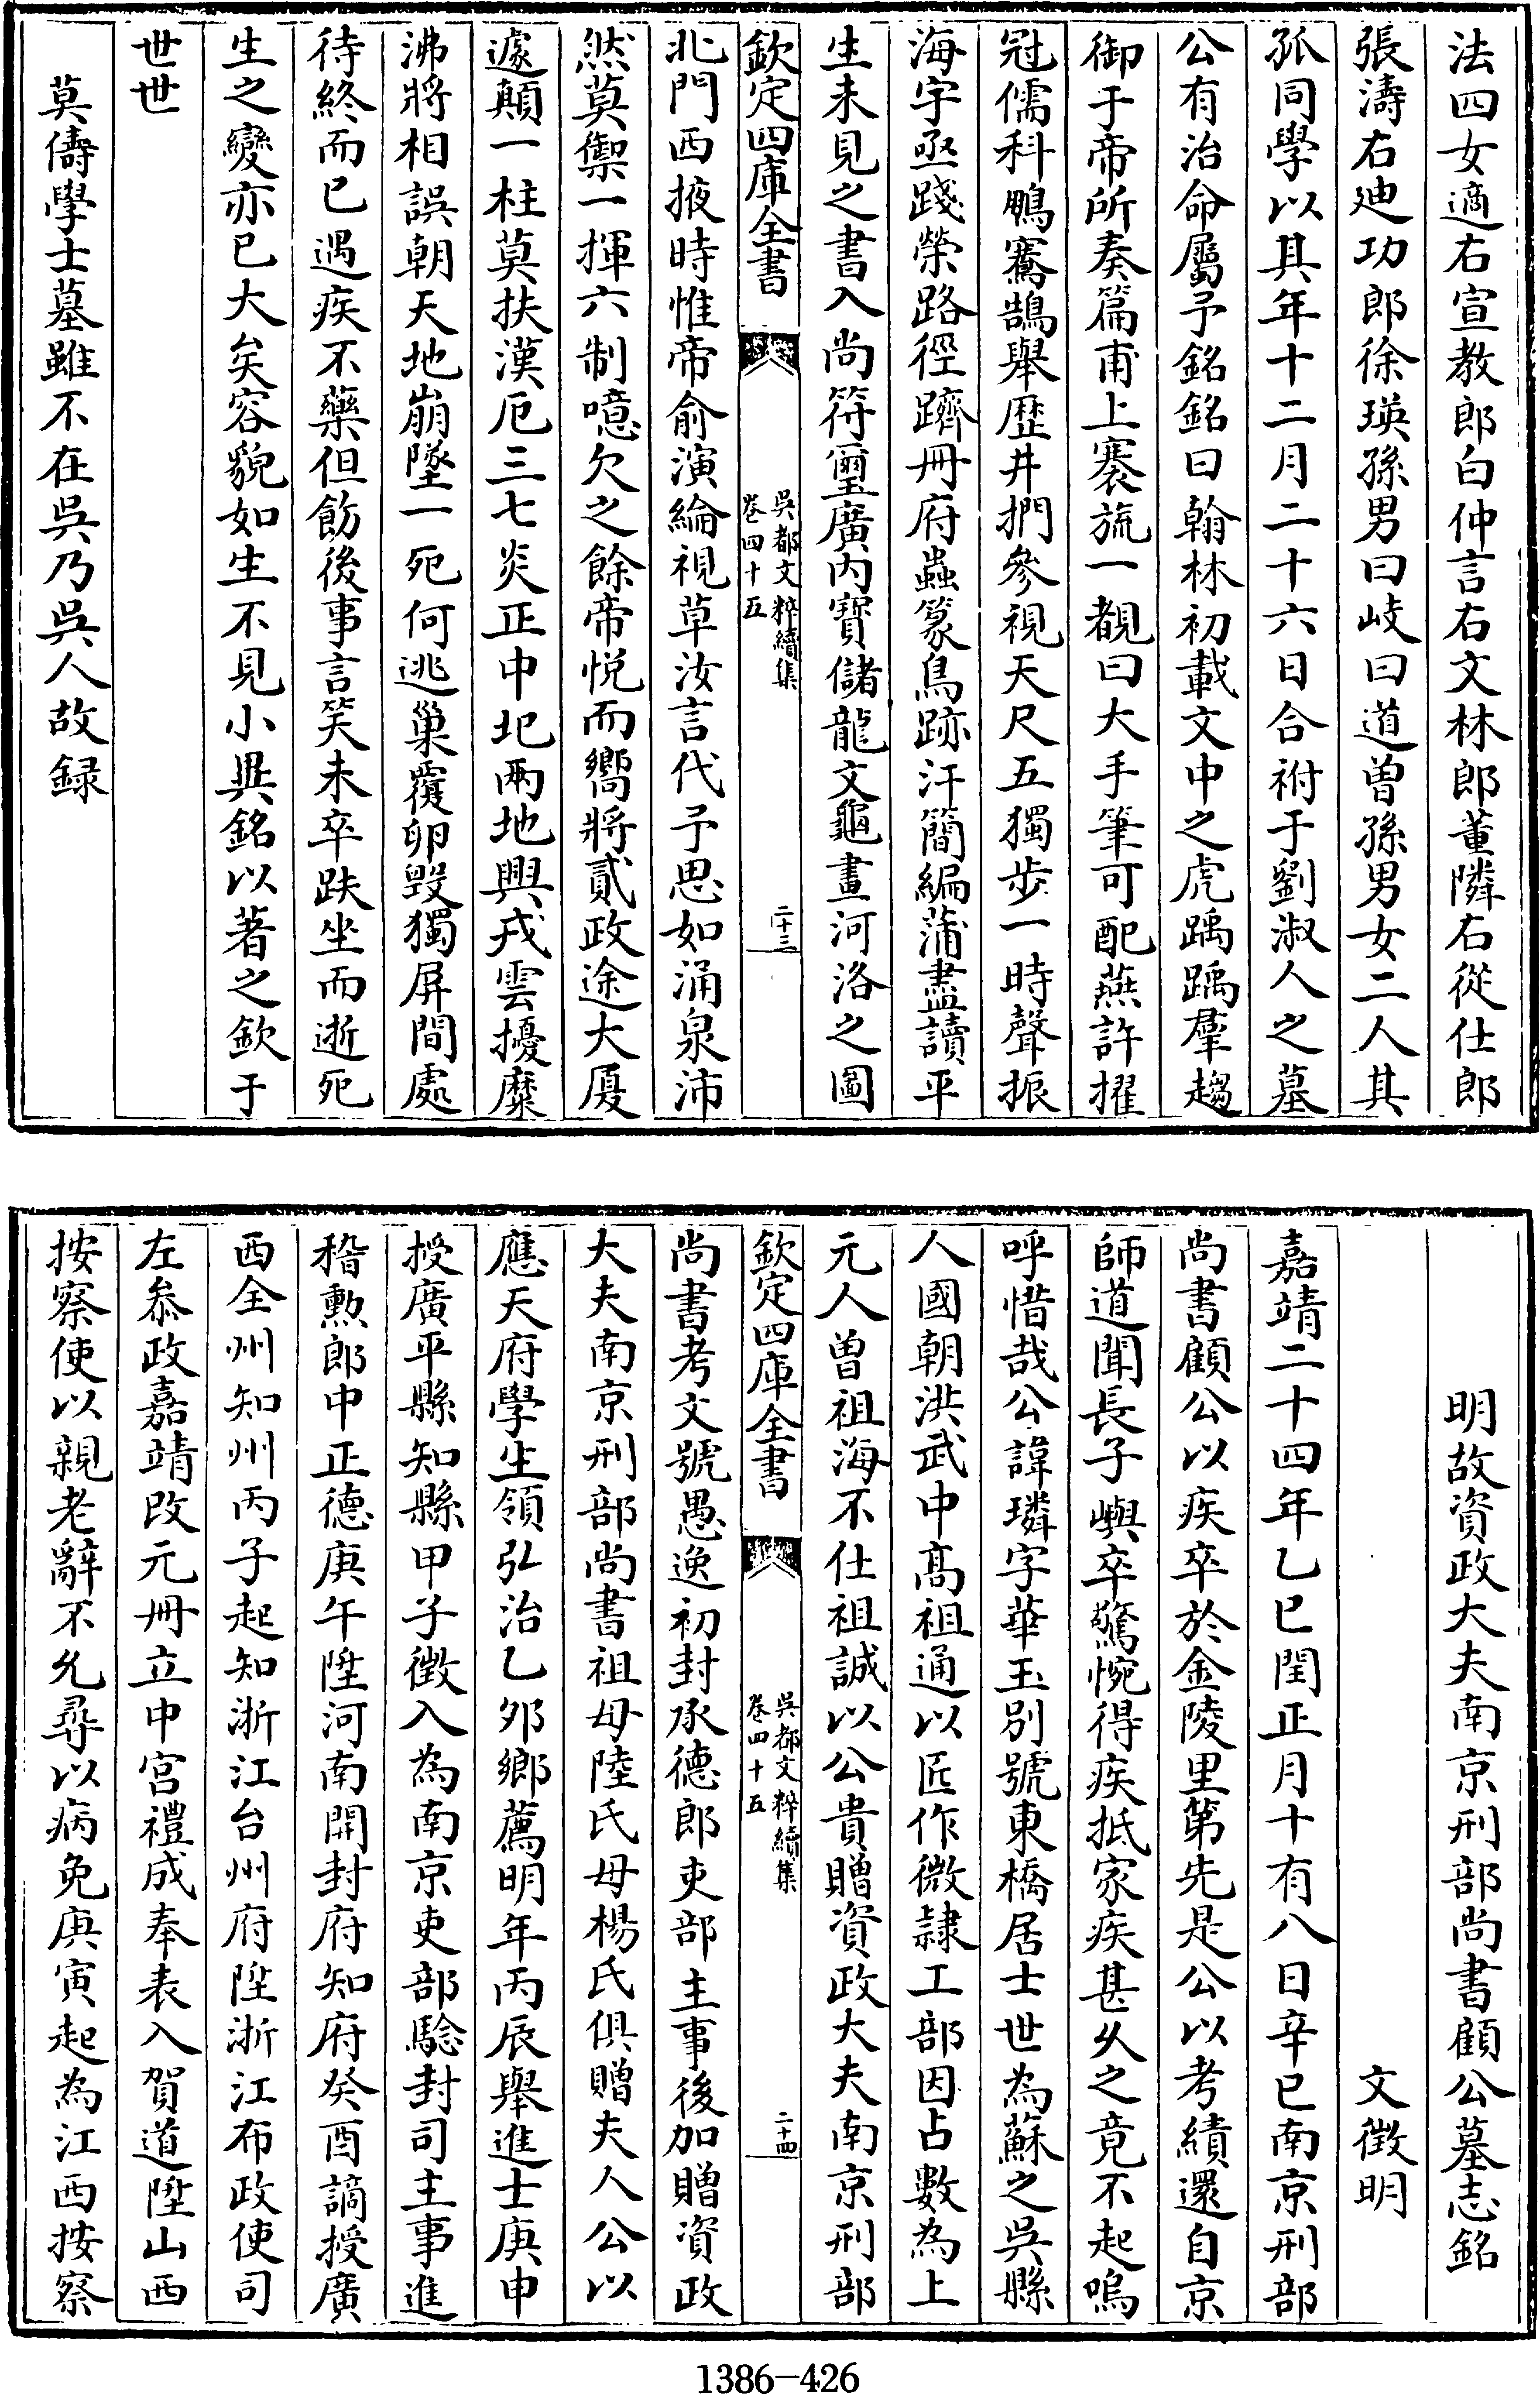 法四女適右宣教郎白仲言右文林郎董隣右從仕郎
張濤右廸功郎徐瑛孫男曰岐曰道曽孫男女二人其
孤同學以其年十二月二十六日合祔于劉淑人之墓
公有治命屬予銘銘曰翰林初載文中之虎踽踽羣趨
御于帝所奏篇甫上褰旒一覩曰大手筆可配燕許擢
冠儒科鵬騫鵠舉歴井捫參視天尺五獨步一時聲振
海宇亟踐榮路徑躋冊府蟲篆鳥跡汗簡編蒲盡讀平
生未見之書入尚符璽廣内寳儲龍文龜畫河洛之圖
欽定四庫全書
吳都文粹續集
卷四十五
二十三
北門西掖時惟帝俞演綸視草汝言代予思如涌泉沛
然莫禦一揮六制噫欠之餘帝悦而嚮將貳政途大厦
遽顛一柱莫扶漢厄三七炎正中圮兩地興戎雲擾糜
沸將相誤朝天地崩墜一死何逃巢覆卵毁獨屏間處
待終而已遇疾不藥但飭後事言笑未卒趺坐而逝死
生之變亦已大矣容貌如生不見小異銘以著之欽于
世世
莫儔學士墓雖不在吳乃吳人故録
明故資政大夫南京刑部尚書顧公墓志銘
文徵明
嘉靖二十四年乙巳閏正月十有八日辛巳南京刑部
尚書顧公以疾卒於金陵里第先是公以考績還自京
師道聞長子嶼卒驚惋得疾抵家疾甚乆之竟不起嗚
呼惜哉公諱璘字華玉别號東橋居士世為蘇之吳縣
人國朝洪武中髙祖通以匠作微隷工部因占數為上
元人曽祖海不仕祖誠以公貴贈資政大夫南京刑部
欽定四庫全書
吳都文粹續集
卷四十五
二十四
尚書考文號愚逸初封承德郎吏部主事後加贈資政
大夫南京刑部尚書祖母陸氏母楊氏俱贈夫人公以
應天府學生領弘治乙夘鄉薦明年丙辰舉進士庚申
授廣平縣知縣甲子徴入為南京吏部騐封司主事進
稽勲郎中正德庚午陞河南開封府知府癸酉謫授廣
西全州知州丙子起知浙江台州府陞浙江布政使司
左叅政嘉靖改元冊立中宫禮成奉表入賀道陞山西
按察使以親老辭不允尋以病免庚寅起為江西按察
1386-426